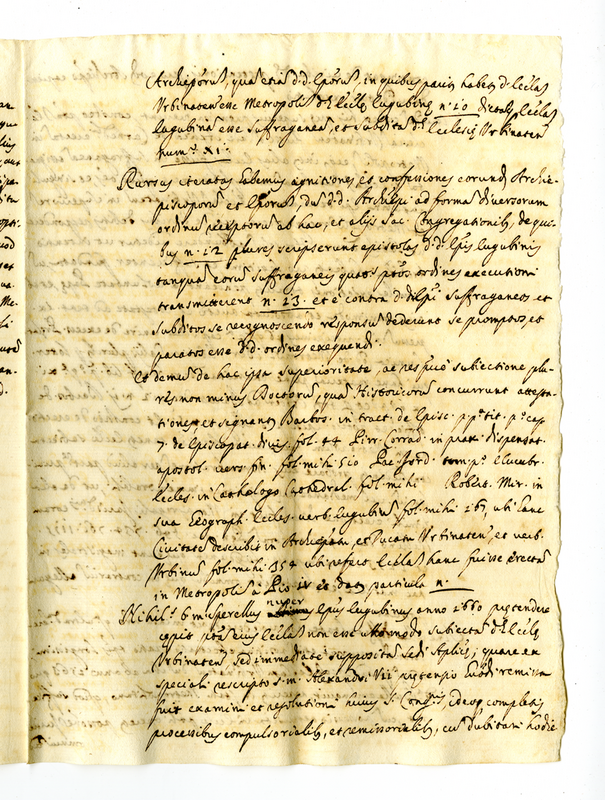 Archiep̃orũ, quã etiã d.d. Ep̃orũ, in quibus passim habetr d. Eccl̃as
Urbinatensem esse Metropolim dtæ Eccl̃æ Eugubinæ nº 10 dictasq Eccl̃as
Eugubinã esse suffraganeã, et subditã dtæ Ecclesiæ Urbinaten
Numº XI.
Rursus iteratas habemus agnitiones et confessiones eorund Archie-
piscoporũ et Ep̃orũ, dũ d.d. Archiep̃i ad formã diversorum
ordinũ receptorũ ab hac, et alijs Sac. Congregationib, de qui-
bus n. 12 plures scripserunt epistolas d.d. Ep̃is Eugubinis
tanquã eorũ suffraganeis quatos ptos ordines executioni
transmitterent n. 13. et è contra d.d. Ep̃i suffraganeos et
subditos se recognoscendo responsũ dederunt se promptos, et
paratos esse d.d. ordines exequendi.
Et demũ de hac ipsa superioritate, ac respectiè subiectione plu-
res non minus Doctorũ, quã Historicorũ concurrunt attesta-
tiones et signantr Barbos. in tract. de Episc. p. pº tit. pº cap.
7. de Episcopat. divis. fol. 44 Pirr. Corrad. in prax. dispensat.
apostol. vers. fin. fol. mihi 510 Pac. Jord. tom. pº elucubr.
Eccles. in Cathalogo Cathedral. fol. mihi Robert. Mir. in
sua Geograph. Eccles. verb. Eugubiũ fol. mihi 167, ubi hanc
Civitatẽ describit in Archiep̃atu, et Ducatu Urbinaten, et verb.
Urbinũ fol. mihi 354 ubi refert Eccl̃ã hanc fuisse erectã
in Metropolim à Pio IV ex data particula n.
Nihil. 6 m. Sperellus nuper Ep̃us Eugubinus anno 1660 prætendere
cæpit ptã eius Eccl̃ã non esse ullo modo subiectã dtæ Eccl̃æ
Urbinaten, sed immediatè suppositã Sedi Aplicæ, quare ex
speciali rescripto s.m. Alexandri VII prætensio huiusmõi remissa
fuit examini et resolutioni huius S. Congnis, ideoq completis
processibus compulsorialib, et remissorialib, cũ dubitari hodie